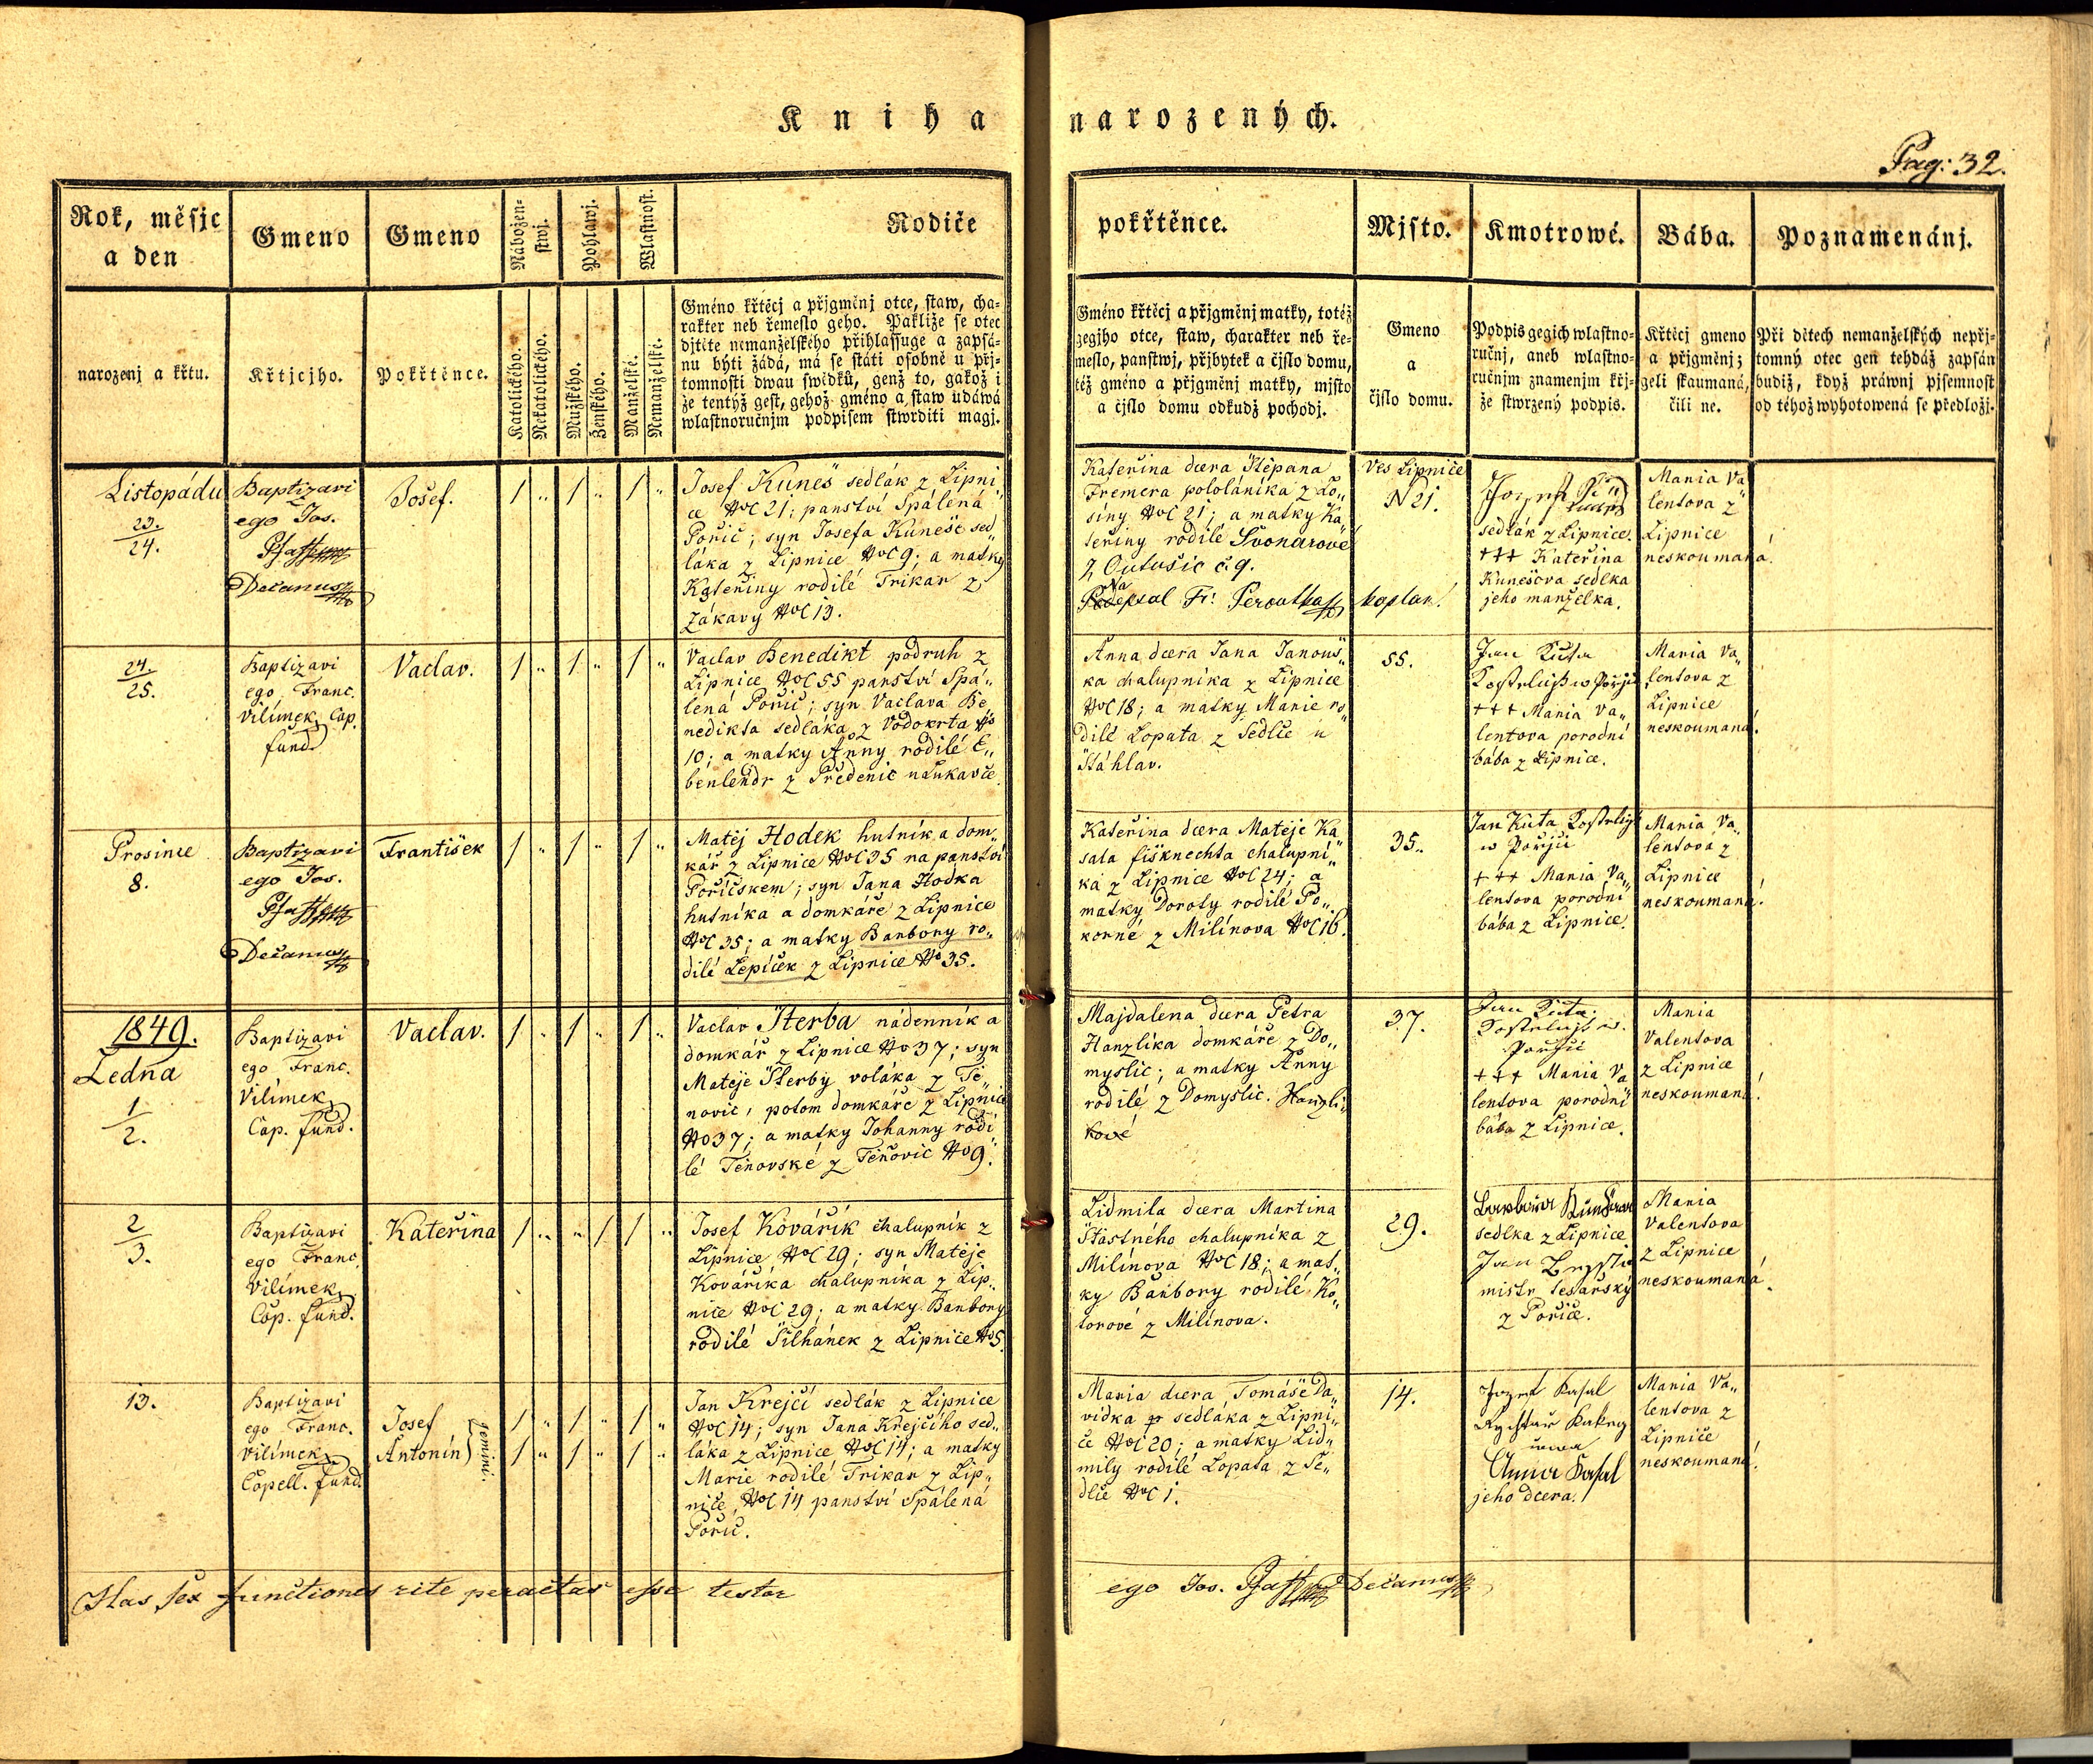 Kniha narozených.
Pag: 32.
Rok, měsjc
a den
narozenj a křtu.
Gmeno
Křtjcjho.
Gmeno
Pokřtěnce.
Nábožen-
stwj.
Katolického.
Nekatolického.
Pohlawj.
Mužského.
Ženského.
Wlastnost.
Manželské.
Nemanželské.
Rodiče
Gméno křtěcj a přjgměnj otce, staw, cha-
rakter neb řemeslo geho. Pakliže se otec
djtěte nemanželského přihlassuge a zapsá-
nu býti žádá, má se státi osobně u přj-
tomnosti dwau swědků, genž to, gakož i
že tentýž gest, gehož gméno a staw udáwá
wlastnoručnjm podpisem stwrditi magj.
pokřtěnce.
Gméno křtěcj a přjgměnj matky, totéž
gegjho otce, staw, charakter neb ře-
meslo, panstwj, přjbytek a čjslo domu,
též gméno a přjgměnj matky, mjsto
a čjslo domu odkudž pochodj.
Mjsto.
Gmeno
a
čjslo domu.
Kmotrowé.
Podpis gegich wlastno-
ručnj, aneb wlastno-
ručnjm znamenjm křj-
že stwrzený podpis.
Bába.
Křtěcj gmeno
a přjgměnj;
geli skaumaná,
čili ne.
Poznamenánj.
Při dětech nemanželských nepřj-
tomný otec gen tehdáž zapsán
budiž, když práwnj pjsemnost
od téhož wyhotowená se předložj.
Listopádu
23.
24.
Baptizavi
ego Jos.
Pfaff
Decanus
Josef.
Josef Kuneš sedlák z Lipni„
ce NoC 21; panství Spálená
Pořič; syn Josefa Kuneše sed„
láka z Lipnice NoC 9; a matky
Kateřiny rodilé Trikar z
Zákavy NoC 13.
Kateřina dcera Štěpana
Fremera pololáníka z Lo„
siny NoC 21; a matky Ka„
teřiny rodilé Švonarové
z Outušic č. 9.
kaplan.
Ves Lipnice
N 21.
sedlák z Lipnice.
+++ Kateřina
Kunešova sedlka
jeho manželka.
Maria Va„
lentova z
Lipnice
neskoumaná.
24.
25.
Baptizavi
ego Franc.
Vilímek Cap.
fund.
Vaclav.
Vaclav Benedikt podruh z
Lipnice NoC 55 panství Spá„
lená Pořič; syn Vaclava Be„
nedikta sedláka z Vodokrta No
10; a matky Anny rodilé E„
benlendr z Předenic u Lukavče
Anna dcera Jana Janouš„
ka chalupníka z Lipnice
NoC 18; a matky Marie ro„
dilé Lopata z Sedlic u
Štáhlav.
55.
Jan Kuta
+++ Maria Va„
lentova porodní
bába z Lipnice.
Maria Va„
lentova z
Lipnice
neskoumaná.
Prosince
8.
Baptizavi
ego Jos.
Pfaff
Decanus
František
Matěj Hodek hutník a dom„
kář z Lipnice NoC 35 na panství
Pořičskem; syn Jana Hodka
hutníka a domkáře z Lipnice
NoC 35; a matky Barbory ro„
dilé Lepiček z Lipnice No 35.
Kateřina dcera Matěje Ka„
sala fišknechta chalupní„
ka z Lipnice NoC 24; a
matky Doroty rodilé Po„
korné z Milínova NoC 16.
35.
Jan Kuta
w Pořjči
+++ Maria Va„
lentova porodní
bába z Lipnice.
Maria Va„
lentova z
Lipnice
neskoumaná.
1849.
Ledna
1
2.
Baptizavi
ego Franc.
Vilímek
Cap. fund.
Vaclav.
Vaclav Šterba nádenník a
domkář z Lipnice No 37; syn
Matěje Šterby voláka z Tě„
novic, potom domkáře z Lipnice
No 37; a matky Johanny rodi„
lé Těnovské z Těňovic No 9.
Majdalena dcera Petra
Hanzlíka domkáře z Do„
myslic; a matky Anny
rodilé z Domyslic. Hanzlí„
kové
37.
Jan Kuta
+++ Maria Va„
lentova porodní
bába z Lipnice.
Maria
Valentova
z Lipnice
neskoumaná.
2
3.
Baptizavi
ego Franc.
Vilímek
Cap. fund.
Kateřina
Josef Kovářík chalupník z
Lipnice NoC 29; syn Matěje
Kováříka chalupníka z Lip„
nice NoC 29; a matky Barbory
rodilé Šilhánek z Lipnice No 5.
Lidmila dcera Martina
Šťastného chalupníka z
Milínova NoC 18; a mat„
ky Barbory rodilé Ko„
torové z Milínova.
29.
sedlka z Lipnice
mistr tesařský
z Pořiče.
Maria
Valentova
z Lipnice
neskoumaná.
13.
Baptizavi
ego Franc.
Vilímek
Capell. fund.
Josef
Antonín
gemini.
Jan Krejčí sedlák z Lipnice
NoC 14; syn Jana Krejčího sed„
láka z Lipnice NoC 14; a matky
Marie rodilé Trikar z Lip„
nice NoC 14 panství Spálená
Pořič.
Maria dcera Tomáše Da„
vídka sedláka z Lipni„
ce NoC 20; a matky Lid„
mily rodilé Lopata z Se„
dlce NoC 1.
14.
Jozef Kasal
Anna Kasal
jeho dcera.
Maria Va„
lentova z
Lipnice
neskoumaná.
Has sex functiones rite peractas esse testor ego Jos. Pfaff Decanus